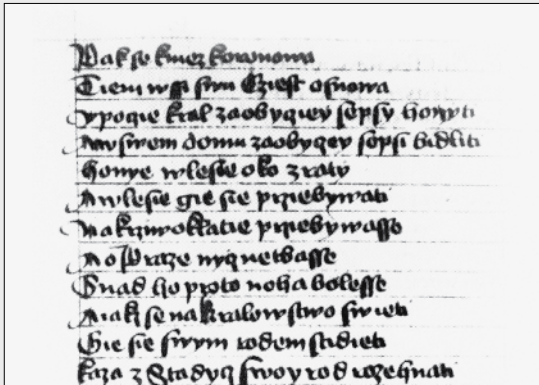 Pak so knez korunowa
Tiem wssi swu Cziest osnowa
ypogie kral zaobyczey sepsy honyti
Anyswem domu zaobyczey sepsi bidliti
honye wlesie oko zraty
Awlesie gie sie prziebywati
Nakrziwoklatie prziebywasse
Ao Praze nycz netbasse
Snad ho proto noha bolesse
Aiak se nakralowstwo swieti
Gie sie swym rodem stidieti
kaza z Stadycz swoy rod rozehnati